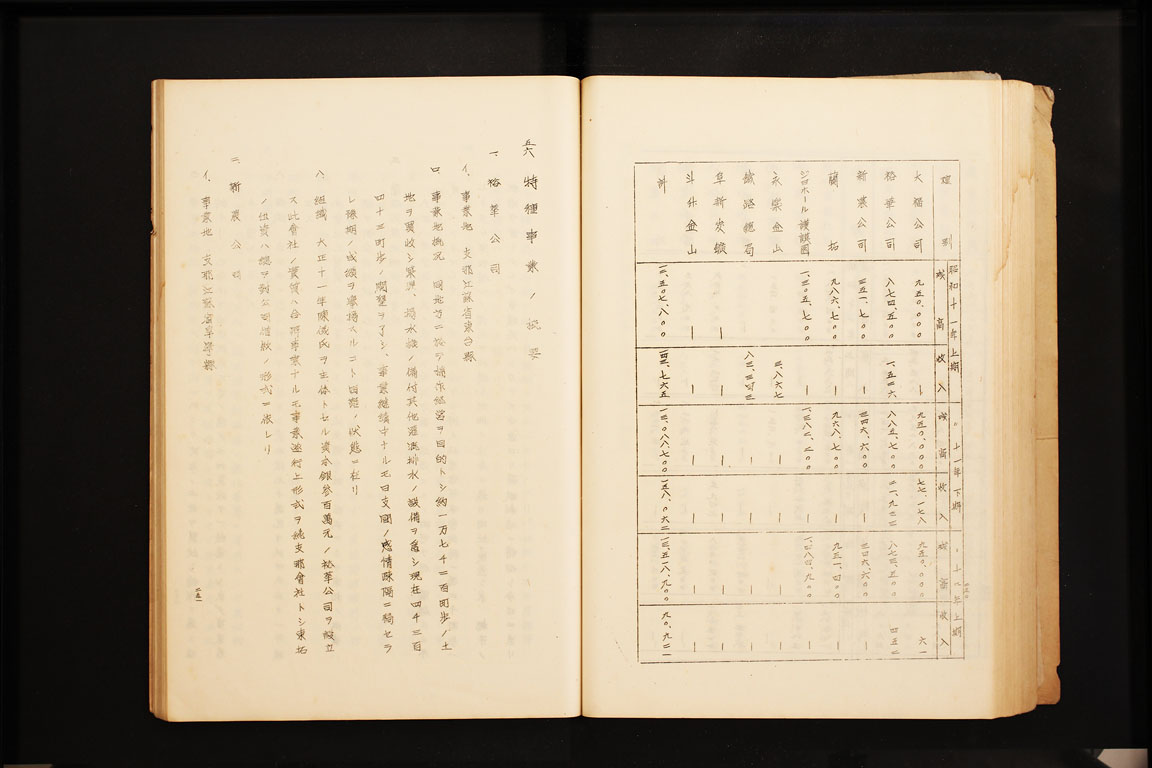 種別
昭和十一年上期
〃 十一年下期
〃 十二年上期
残高
収入
残高
収入
残高
収入
大福公司 九五〇、〇〇〇 — 九五〇、〇〇〇 七七、一七八 九五〇、〇〇〇 六一
裕華公司 八七四、五〇〇 一、五二六 八八五、七〇〇 八七三、五〇〇 四五二
新農公司 三五一、七〇〇 — 三四六、六〇〇 — 三四六、六〇〇 —
藤 九八六、七〇〇 — 九六八、七〇〇 — 九五一、四〇〇 —
ジョホール護謨園 — — —
永楽金山 三、八六七 — — — —
鉄路総局 — — — —
阜新炭鑛 — — — — — —
斗什金山 — — — — — —
計 四三、七六五 一五八、〇六二 九〇、九二一
一五〇
特種事業ノ概要
一、裕華公司
イ、事業地 支那江蘇省東台縣
ロ、事業地概況 同地方ニ於ヲ棉作経営ヲ目的トシ約一万七千二百町歩ノ土
地ヲ買收シ築堤、揚水機ノ備付其他灌漑排水ノ設備ヲ為シ現在四千三百
四十三町歩ノ開墾ヲ了シ、事業継續中ナルモ日支間ノ感情疎隔ニ禍セラ
レ豫期ノ成績ヲ挙揚スルコト困難ノ状態ニ在リ
ハ、組織 大正十一年陳儀氏ヲ主体トセル資本銀参百萬元ノ裕華公司ヲ設立
ス此會社ノ實質ハ合辨事業ナルモ事業遂行上形式ヲ純支那會社トシ東拓
ノ投資ハ總テ對公司借款ノ形式ニ依レリ
二、新農公司
イ、事業地 支那江蘇省阜寧縣
一五一